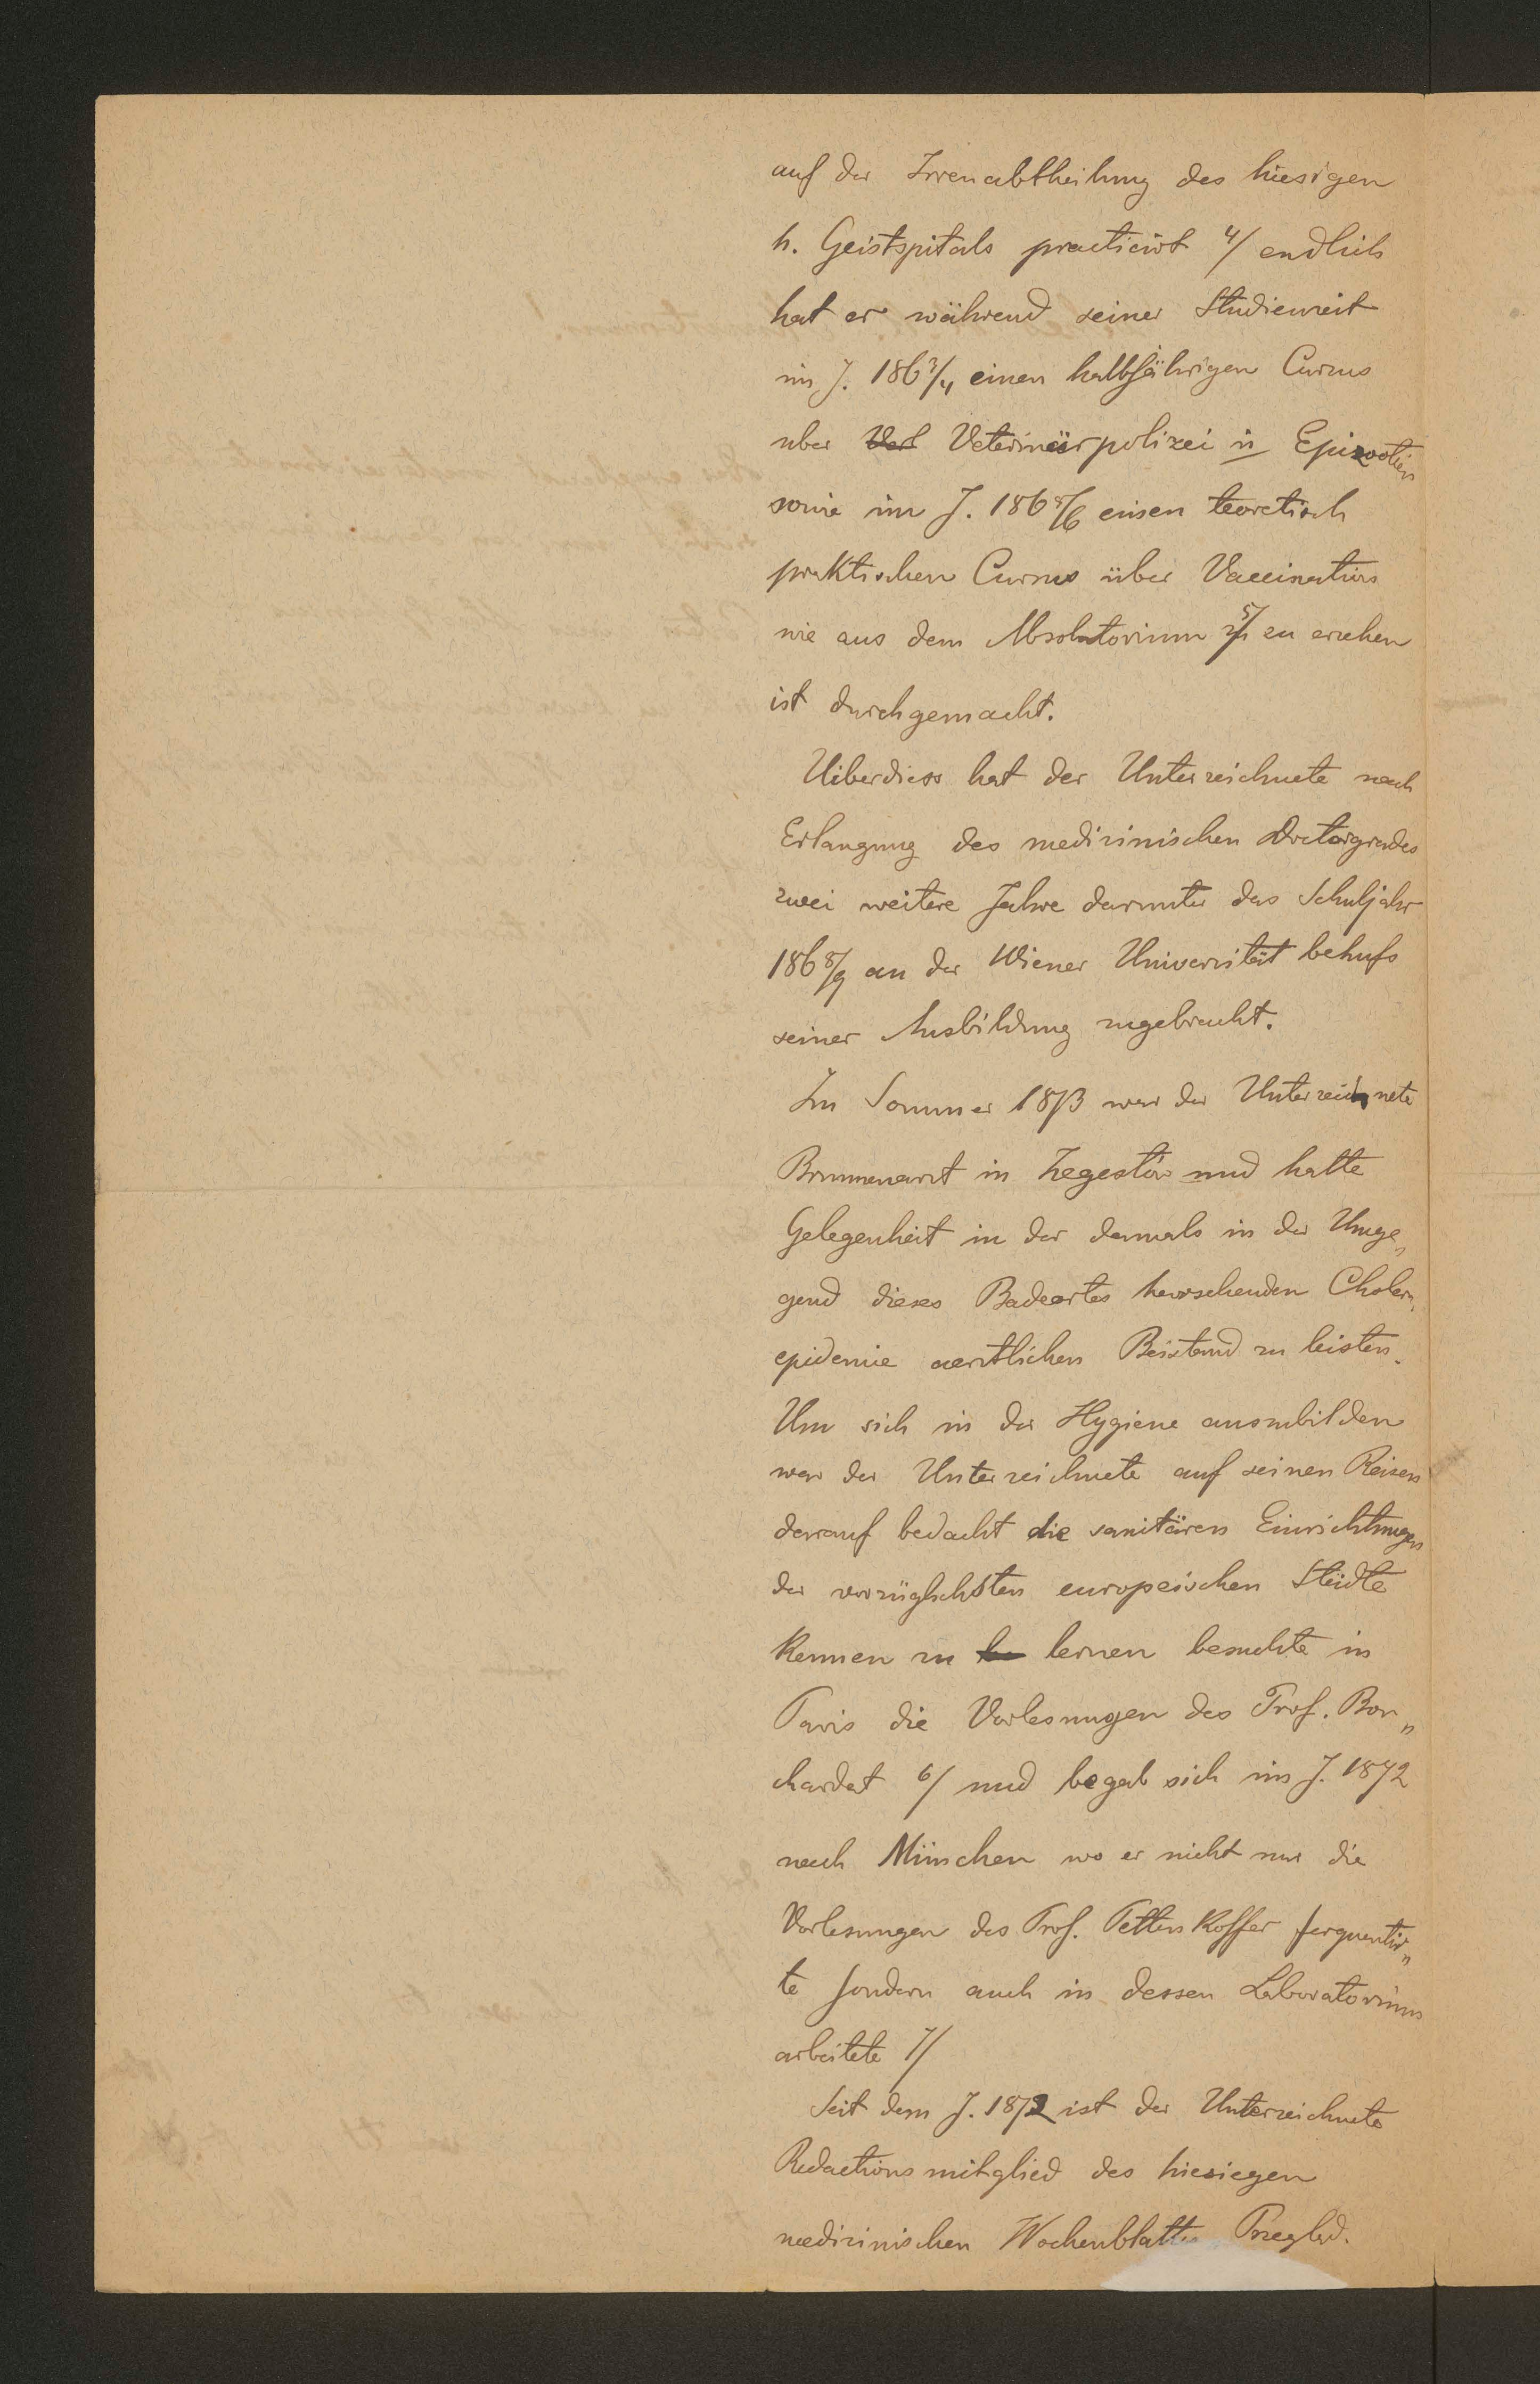 auf der Irrenabtheilung des hiesigen
h. Geistspitals practicirt 4/ endlich
hat er während seiner Studienzeit
im J. 186 3/4 einen halbjährigen Cursus
uber Vet Veterinärpolizei u Epizootien
sowie im J. 186 5/6 einen teoretisch
praktischen Cursus über Vaccination
wie aus dem Absolutorium 5/ zu ersehen
ist durchgemacht.
Uiberdiess hat der Unterzeichnete nach
Erlangung des medizinischen Doctorgrades
zwei weitere Jahre darunter das Schuljahr
186 8/9 an der Wiener Universität behufs
seiner Ausbildung zugebracht.
Im Sommer 1873 war der Unterzeichnete
Brunnenarzt in Żegestów und hatte
Gelegenheit in der damals in der Umge„
gend dieses Badeortes herrschenden Cholera„
epidemie aerztlichen Beistand zu leisten.
Um sich in der Hygiene auszubilden
war der Unterzeichnete auf seinen Reisen
darauf bedacht die sanitären Einrichtungen
der vorzüglichsten europeischen Städte
kennen zu le lernen besuchte in
Paris die Vorlesungen des Prof. Bou„
chardat 6/ und begab sich im J. 1872
nach München wo er nicht nur die
Vorlesungen des Prof. Pettenkoffer ferquentir„
te sondern auch in dessen Laboratorium
arbeitete 7/
Seit dem J. 1872 ist der Unterzeichnete
Redactionsmitglied des hiesiegen
medizinischen Wochenblattes Przegląd.